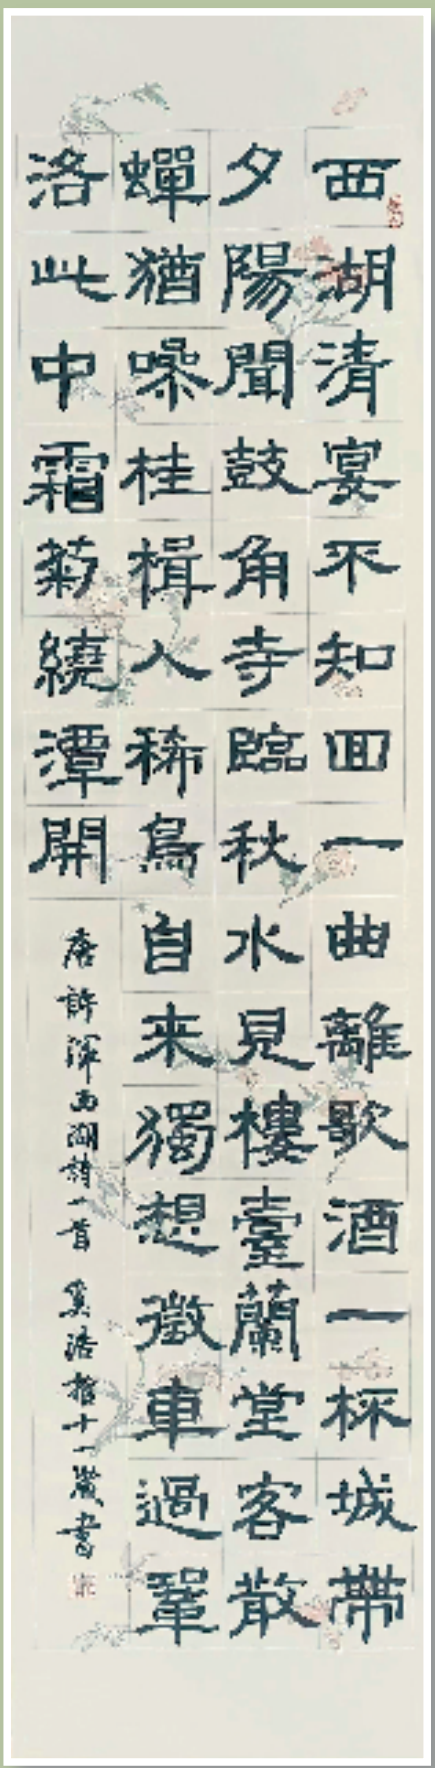 西湖清宴不知回一曲離歌酒一杯城帶
夕陽聞鼓角寺臨秋水見樓臺蘭堂客散
蟬猶噪桂楫人稀鳥自来獨想徵車過鞏
洛此中霜菊繞潭開
唐許渾西湖詩一首 浩楷十一歲書